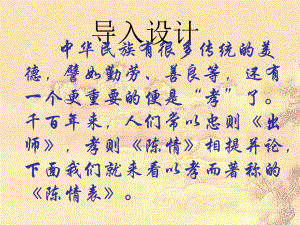 导入设计
中华民族有很多传统的美
德，譬如勤劳、善良等，还有
一个更重要的便是“孝”了。
千百年来，人们常以忠则《出
师》，孝则《陈情》相提并论，
下面我们就来看以孝而著称的
《陈情表》。